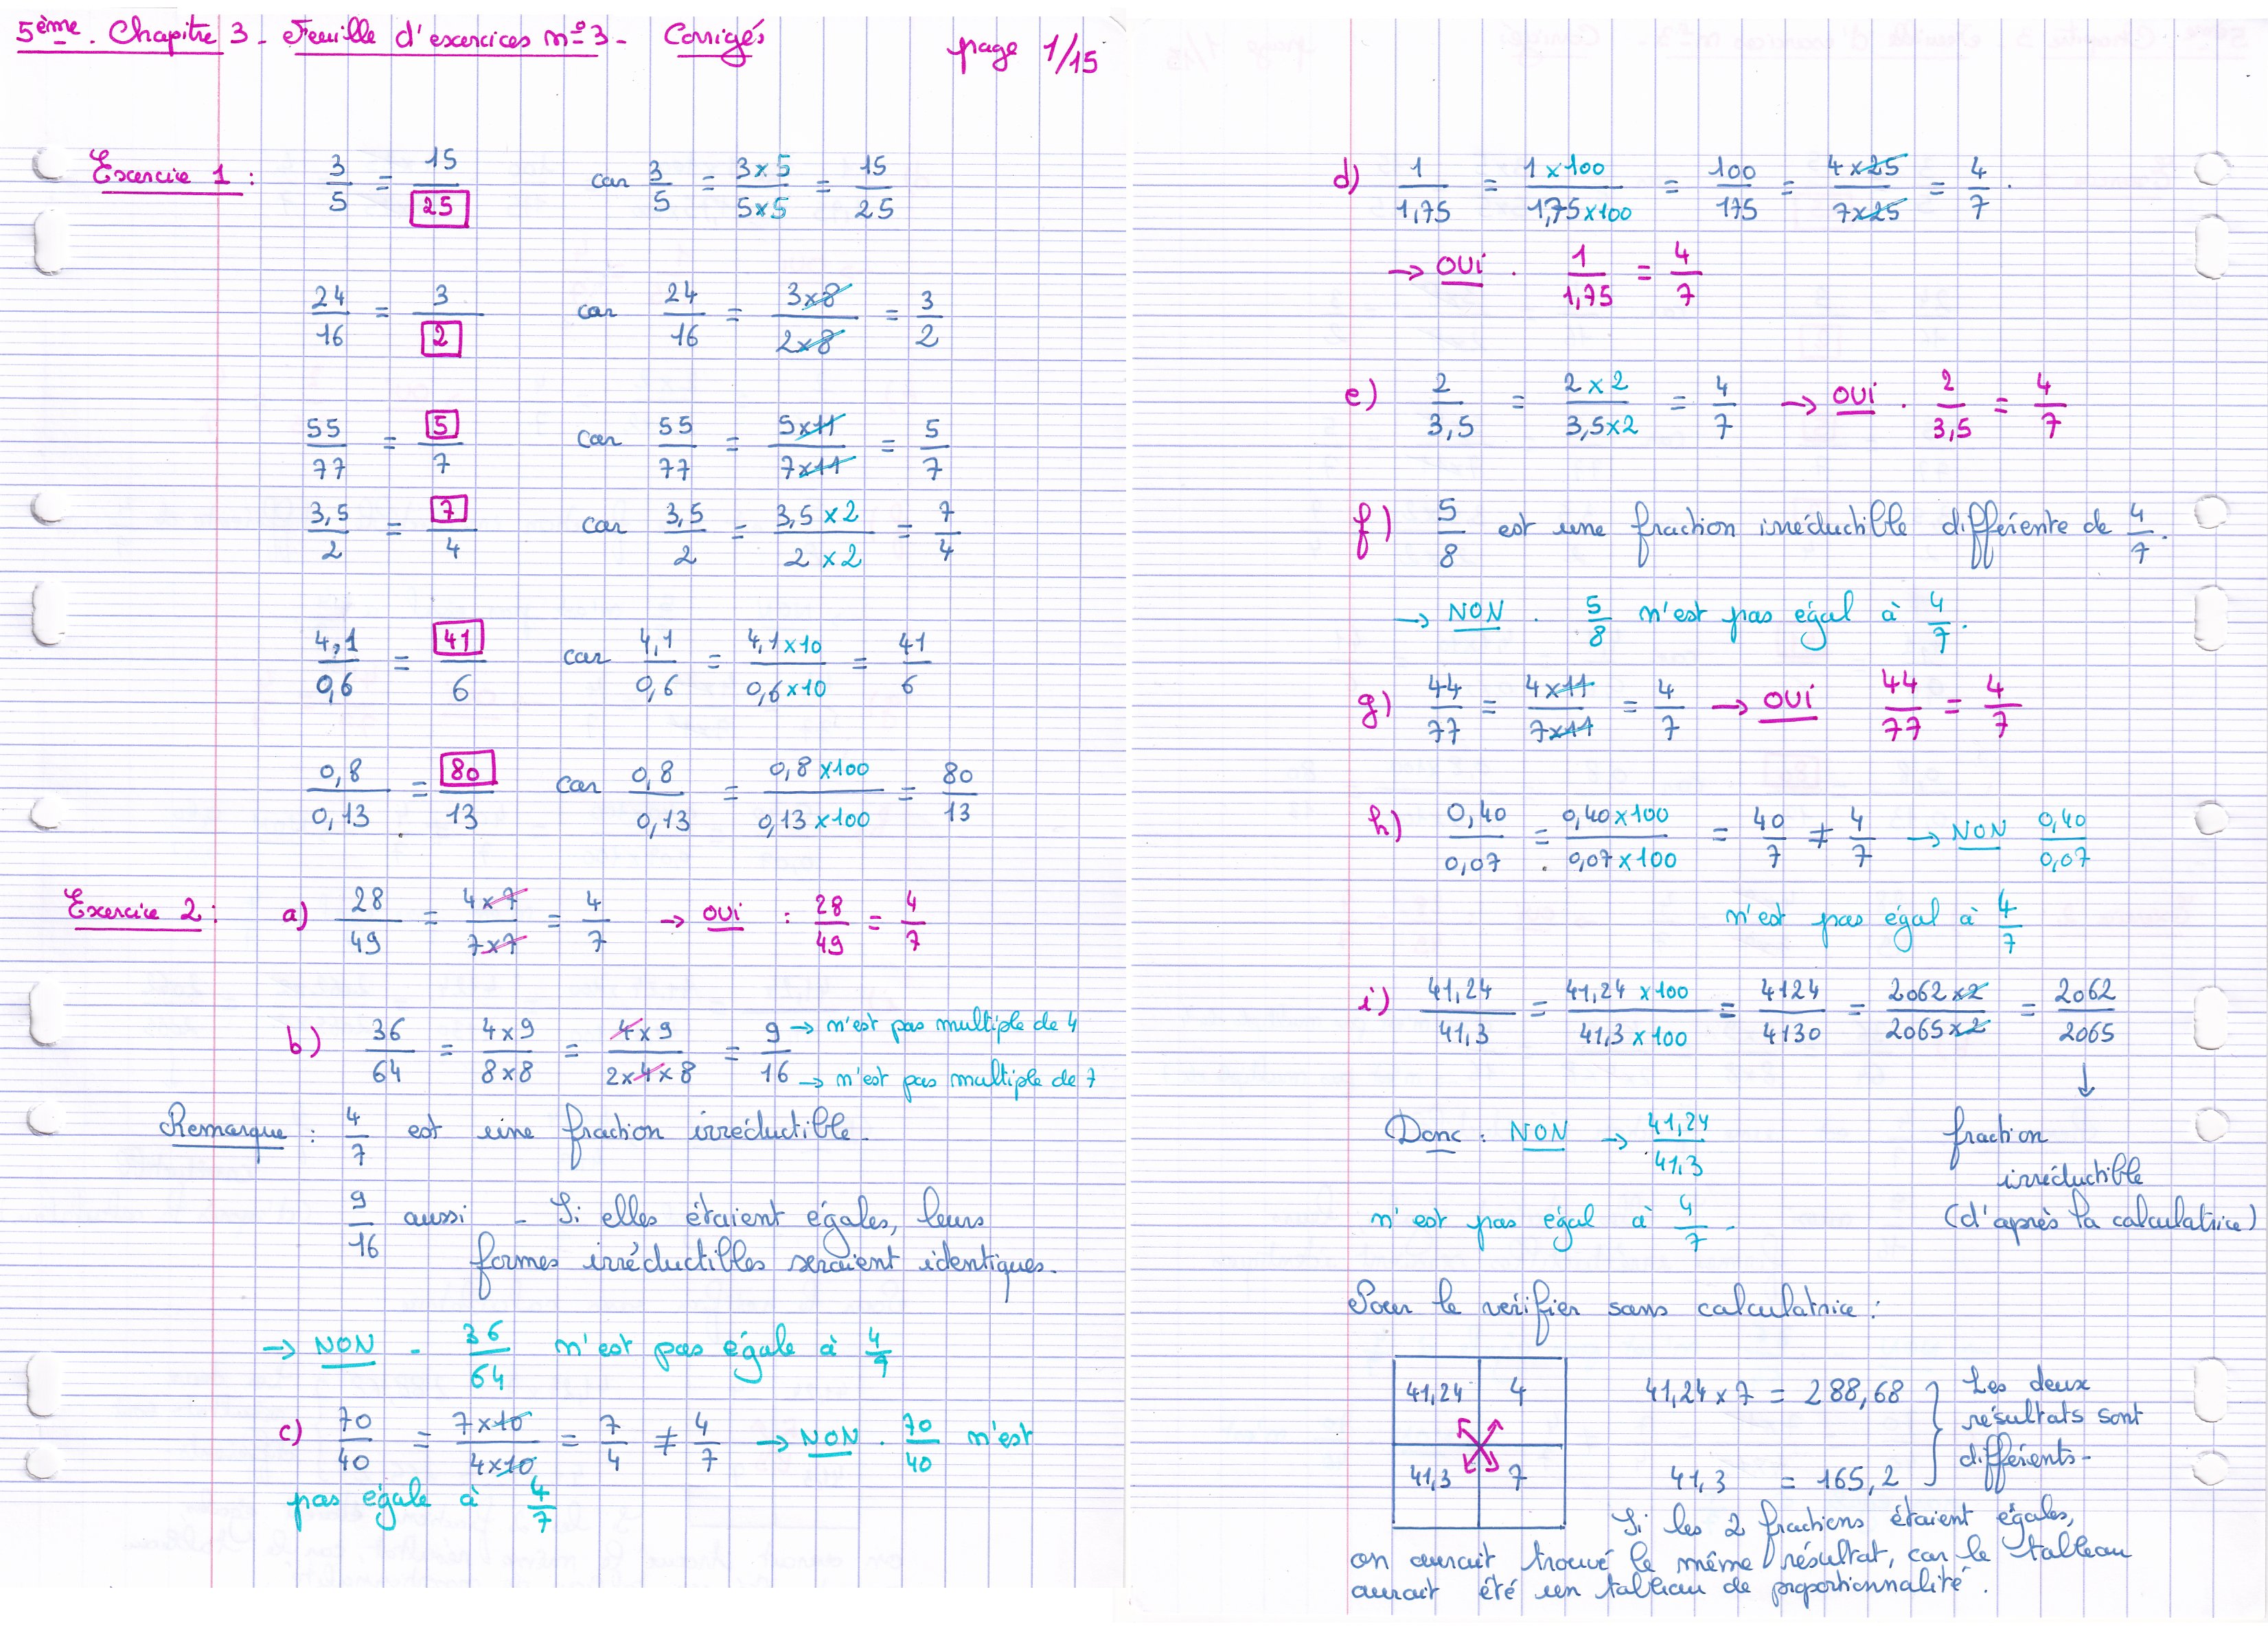 5ème. Chapitre 3 - Feuille d'exercices n°3 - Corrigés page 1/15
Exercice 1 : 3/5 = 15/25 car 3/5 = 3×5/5×5 = 15/25
24/16 = 3/2 car 24/16 = 3×8/2×8 = 3/2
55/77 = 5/7 car 55/77 = 5×11/7×11 = 5/7
3,5/2 = 7/4 car 3,5/2 = 3,5×2/2×2 = 7/4
4,1/0,6 = 41/6 car 4,1/0,6 = 4,1×10/0,6×10 = 41/6
0,8/0,13 = 80/13 car 0,8/0,13 = 0,8×100/0,13×100 = 80/13
Exercice 2 : a) 28/49 = 4×7/7×7 = 4/7 → OUI : 28/49 = 4/7
b) 36/64 = 4×9/8×8 = 4×9/2×4×8 = 9/16 → n'est pas multiple de 4
→ n'est pas multiple de 7
Remarque : 4/7 est une fraction irréductible.
9/16 aussi - Si elles étaient égales, leurs
formes irréductibles seraient identiques.
→ NON - 36/64 n'est pas égale à 4/7
c) 70/40 = 7×10/4×10 = 7/4 ≠ 4/7 → NON . 70/40 n'est
pas égale à 4/7
d) 1/1,75 = 1×100/1,75×100 = 100/175 = 4×25/7×25 = 4/7 .
→ OUI . 1/1,75 = 4/7
e) 2/3,5 = 2×2/3,5×2 = 4/7 → OUI . 2/3,5 = 4/7
f) 5/8 est une fraction irréductible différente de 4/7.
→ NON . 5/8 n'est pas égal à 4/7.
g) 44/77 = 4×11/7×11 = 4/7 → OUI 44/77 = 4/7
h) 0,40/0,07 = 0,40×100/0,07×100 = 40/7 ≠ 4/7 → NON 0,40/0,07
n'est pas égal à 4/7
i) 41,24/41,3 = 41,24×100/41,3×100 = 4124/4130 = 2062×2/2065×2 = 2062/2065
↓
Donc : NON → 41,24/41,3
n'est pas égal à 4/7 -
fraction
irréductible
(d'après la calculatrice)
Pour le vérifier sans calculatrice :
41,24 4
41,3 7
41,24×7 = 288,68
41,3 = 165,2
Les deux
résultats sont
différents -
Si les 2 fractions étaient égales,
on aurait trouvé le même résultat, car le tableau
aurait été un tableau de proportionnalité.